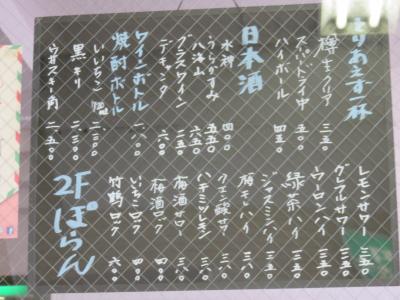 とりあえず一杯
樽生クリア 三五〇
スーパードライ中 四五〇
ハイボール 四五〇
日本酒
水神 四〇〇
うらがすみ 五五〇
八海山 六五〇
グラスワイン 三五〇
デキャンタ 六〇〇
ワインボトル 一、八〇〇
焼酎ボトル
いいちこ 二、三〇〇
黒キリ 二、三〇〇
ウイスキー角 二、五〇〇
レモンサワー 三五〇
グレフルサワー 三五〇
ウーロンハイ 三五〇
緑茶ハイ 三五〇
ジャスミンハイ 三五〇
梅干しハイ 三八〇
クエン酸サワー 三八〇
ハチミツレモン 三八〇
梅酒サワー 三八〇
梅酒ロック 四〇〇
いいちこロック 四〇〇
竹鶴ロック 六〇〇
2Fぽらん